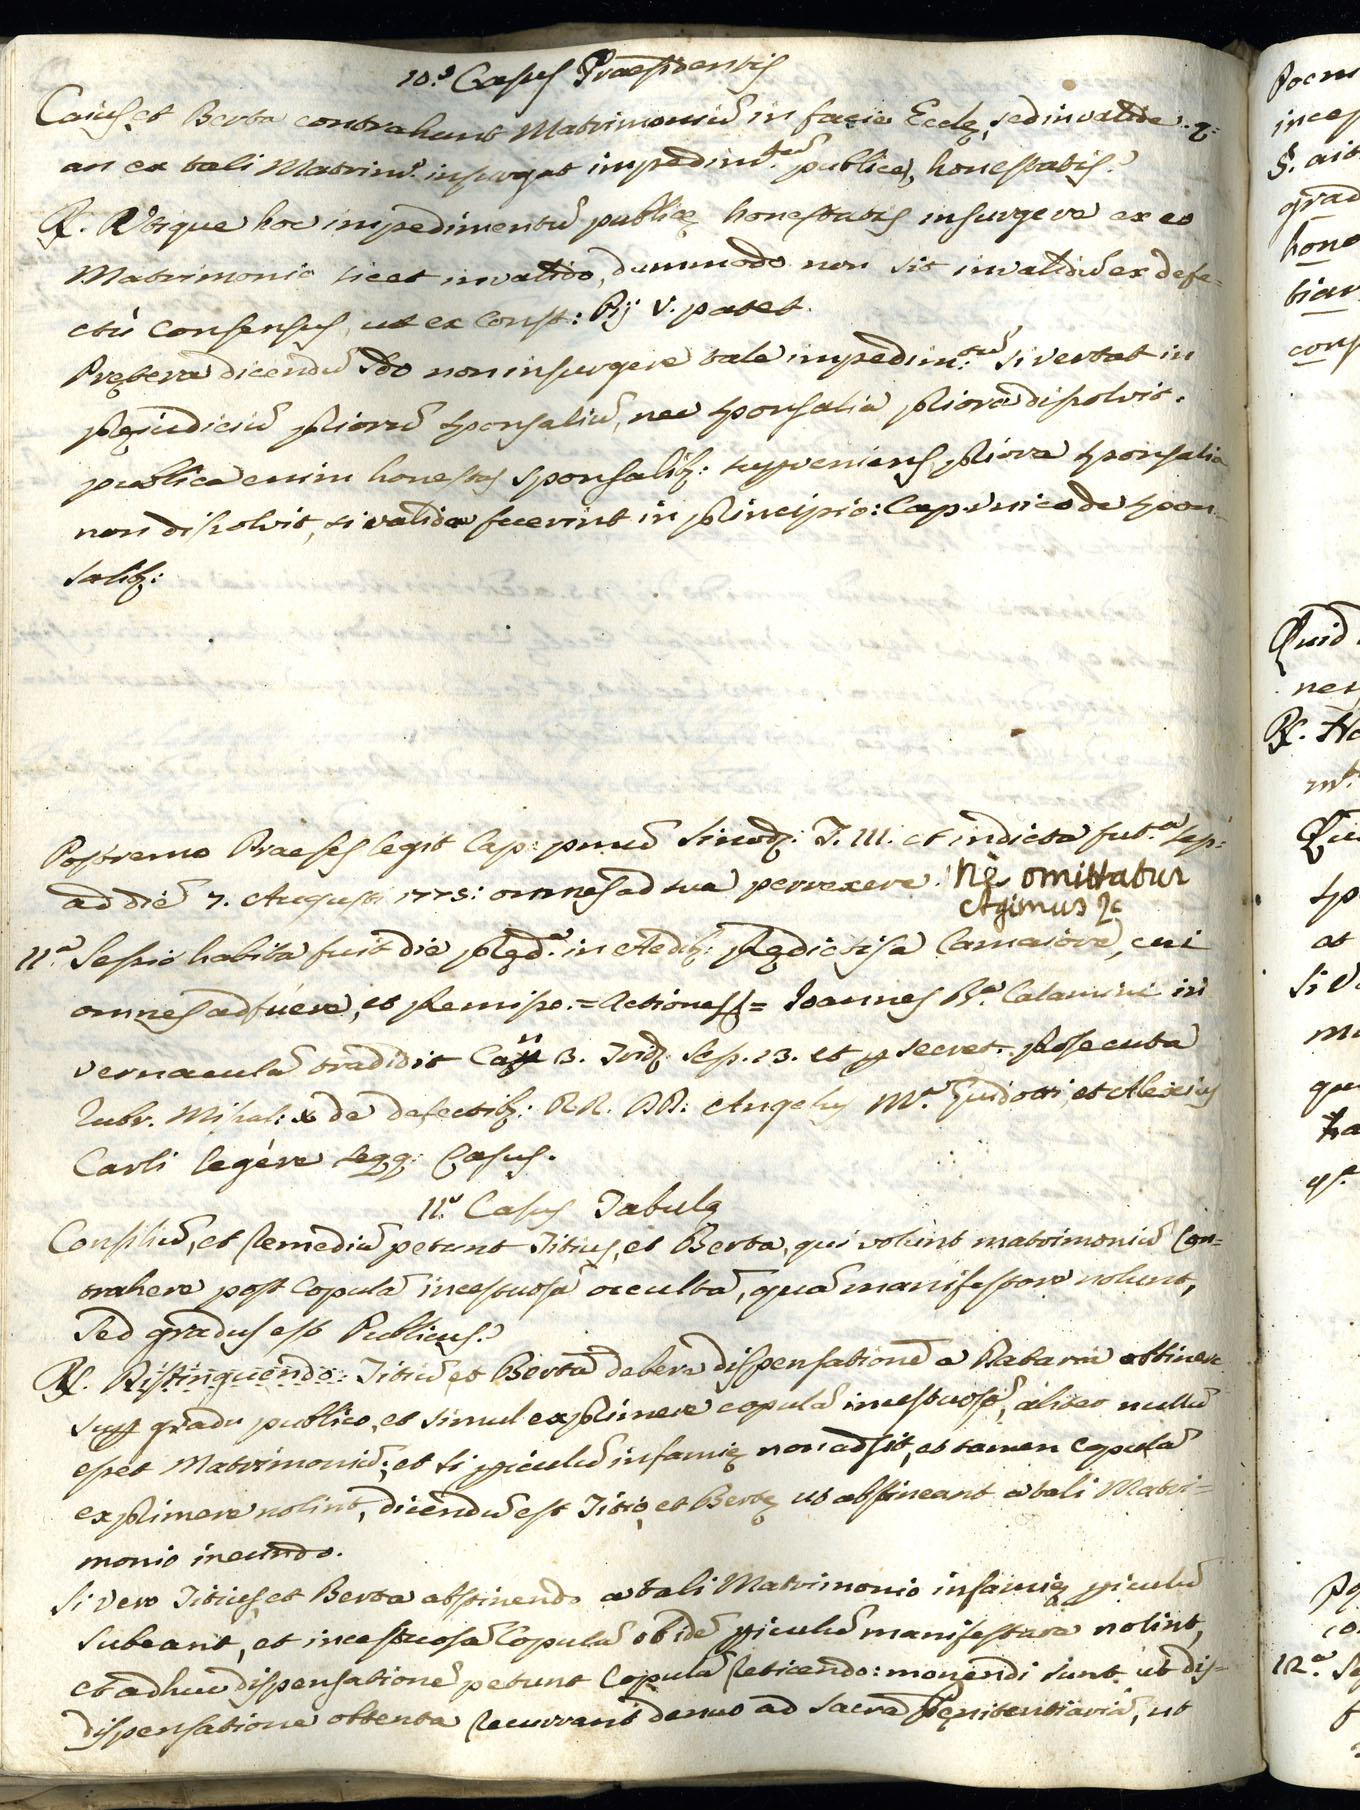 10.º Casus Praesidentis
Caius, et Berta contrahunt Matrimoniũ in facie Eccle, sed invalide. q:
an ex tali Matrimº. insurgat impedimtũ publicę honestatis?
R. Utique hoc impedimentũ publicę honestatis insurgere ex eo
Matrimonio licet invalido, dummodo non sit invalidũ ex defe=
ctu consensus, ut ex Const: Pij V. patet.
Pręterea dicendũ 2do non insurgere tale impedim:tũ si vertat in
pręjudiciũ priorũ sponsaliũ, nec sponsalia priora dissolvit.
publica enim honestas sponsalib: superveniens, priora sponsalia
non dissolvit, si valida fuerint in principio: Cap. unico de spon=
salib:
Postremo Praeses legit Cap: primũ Sinod: T. III. et indicta fut.ª sess:
ad diẽ 7. Augusti 1775: omnes ad sua perrexere. Ne omittatur
Agimus &c
11.ª Sessio habita fuit die pręd.ª in Aedib: prędictis a Camaiore, cui
omnes adfuere, et premisso = Actiones = Ioannes B.ª Catamini in
vernaculã tradidit Can 13. Trid: Sess. 23. et p secret. prosecuta
Rubr. Missal: de defectib: RR. DD: Angelus M.ª Guidotti, et Alexius
Carli legére seqq: Casus.
11.º Casus Tabulę
Consiliũ, et remediũ petunt Titius, et Berta, qui volunt matrimoniũ con=
trahere post copulã incestuosã occultã, quã manifestare nolunt,
sed gradus est Publicus?
R. Distinguendo: Titiũ, et Bertã debere dispensationẽ a Dataria obtinere
supr gradu publico, et simul exprimere copulã incestuosã, aliter nullũ
esset Matrimoniũ; et si piculũ infamię non adsit, et tamen copulã
exprimere nolint, dicendũ est Titio, et Bertę ut abstineant a tali Matri=
monio ineundo.
Si vero Titius, et Berta abstinendo a tali Matrimonio infamię piculũ
subeant, et incestuosã Copulã ob idẽ piculũ manifestare nolint,
et adhuc dispensationẽ petunt Copulã reticendo: monendi sunt ut dis=
dispensatione obtenta recurrant denuo ad Sacrã Pęnitentiariã, ut